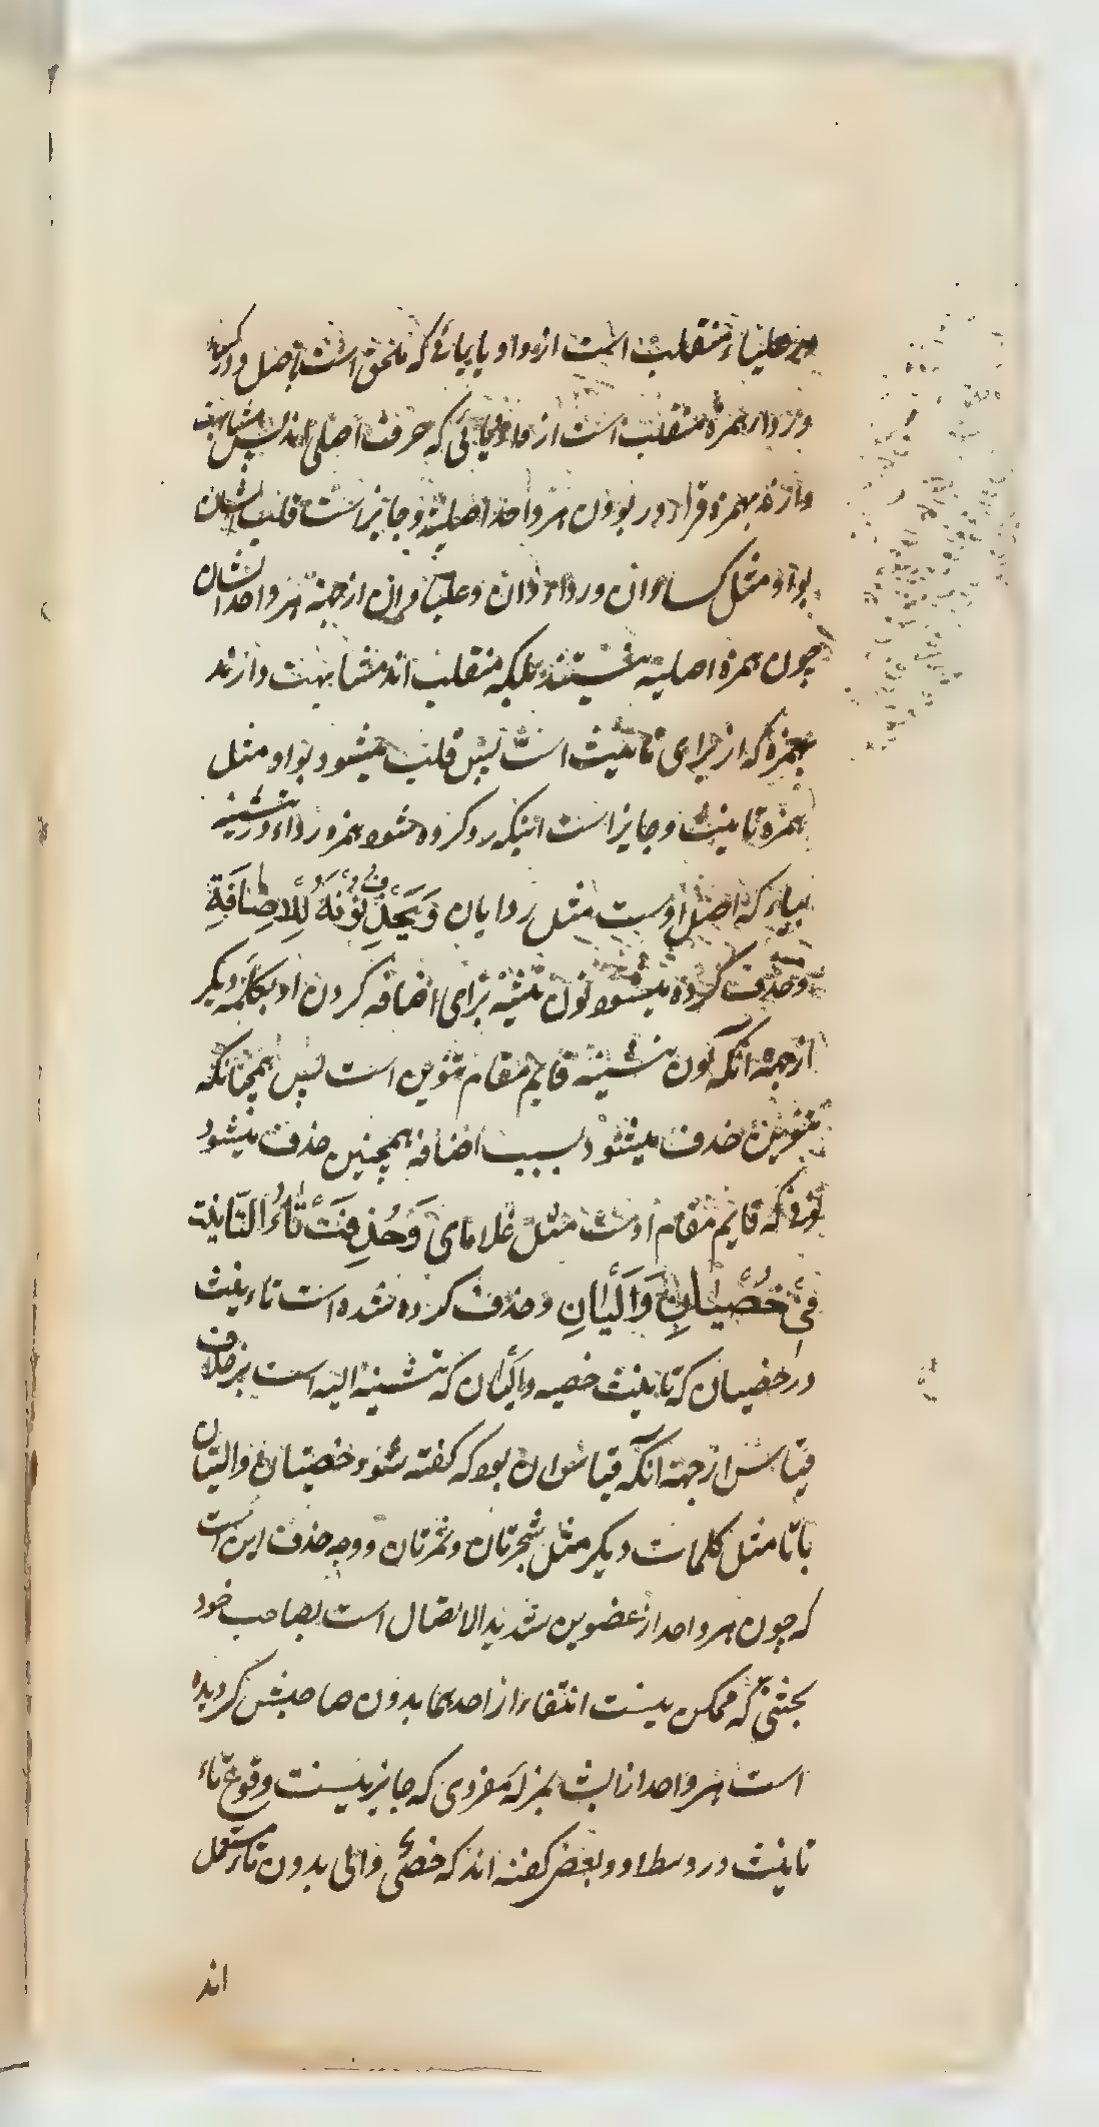 در علیاء منقلب است از واو یا یائی که ملحق است باصل و در کساء
و رداء همزه منقلب است از واو و یائی که حرف اصلی اند پس مشابهت
دارند بهمزه قراء در بودن هر واحد اصلیه و جایز است قلب ایشان
بواو مثل کساوان و رداوان و علباوان از جهة هر واحد ایشان
چون همزه اصلیه نیستند بلکه منقلب اند مشابهت دارند
بهمزه که از برای تانیث است پس قلب میشود بواو مثل
همزه تانیث و جایز است اینکه رد کرده شود همزه رداء در تثنیه
بیاء که اصل اوست مثل ردایان وَیُحذَفُ نُونُهُ لِلْاِضَافَةِ
و حذف کرده میشود نون تثنیه برای اضافه کردن او بکلمه دیگر
از جهة آنکه نون تثنیه قایم مقام تنوین است پس همچنانکه
تنوین حذف میشود بسبب اضافه همچنین حذف میشود
نونی که قایم مقام اوست مثل غلامای وَحُذِفَتْ تَاءُ التَّانیث
فِی خُصْیَانِ وَاَلْیَانِ و حذف کرده شده است تاء تانیث
در خصیان که تانیث خصیه و الیان که تثنیه الیه است بر خلاف
قیاس از جهة آنکه قیاس ان بود که گفته شود خصیتان و الیتان
با تا مثل کلمات دیگر مثل شجرتان و ثمرتان و وجه حذف این است
که چون هر واحد از عضوین شدید الاتصال است بصاحب خود
بحیثی که ممکن نیست انتفاء از احدهما بدون صاحبش کردیده
است هر واحد از ایشان بمنزله مفردی که جایز نیست وقوع تاء
تانیث در وسط او و بعض گفته اند که خصی و الی بدون تاء مستعمل
اند